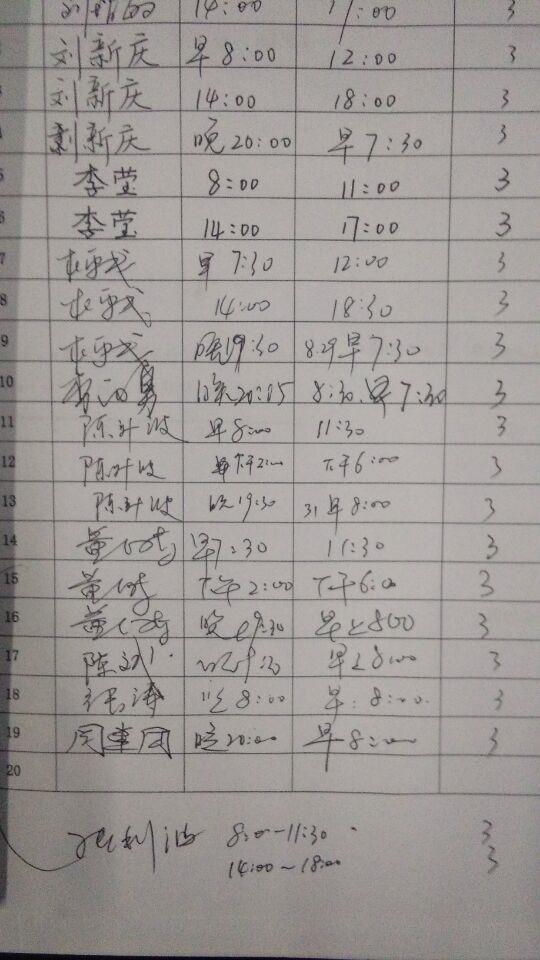 14:00 17:00 3
刘新庆 早8:00 12:00 3
3 刘新庆 14:00 18:00 3
4 刘新庆 晚20:00 早7:30 3
5 李莹 8:00 11:00 3
6 李莹 14:00 17:00 3
7 早7:30 12:00 3
8 14:00 18:30 3
9 晚19:30 8.29早7:30 3
10 晚20:05 8:30.早7:30 3
11 陈叶波 早8:00 11:30 3
12 陈叶波 下午2:00 下午6:00 3
13 陈叶波 晚19:30 31早8:00 3
14 早7:30 11:30 3
15 下午2:00 下午6:00 3
16 晚19:30 早上800 3
17 晚19:30 早上8:00 3
18 8:00 早:8:00 3
19 周建国 晚20:00 早8:00 3
20
8:00-11:30 3
14:00~18:00 3